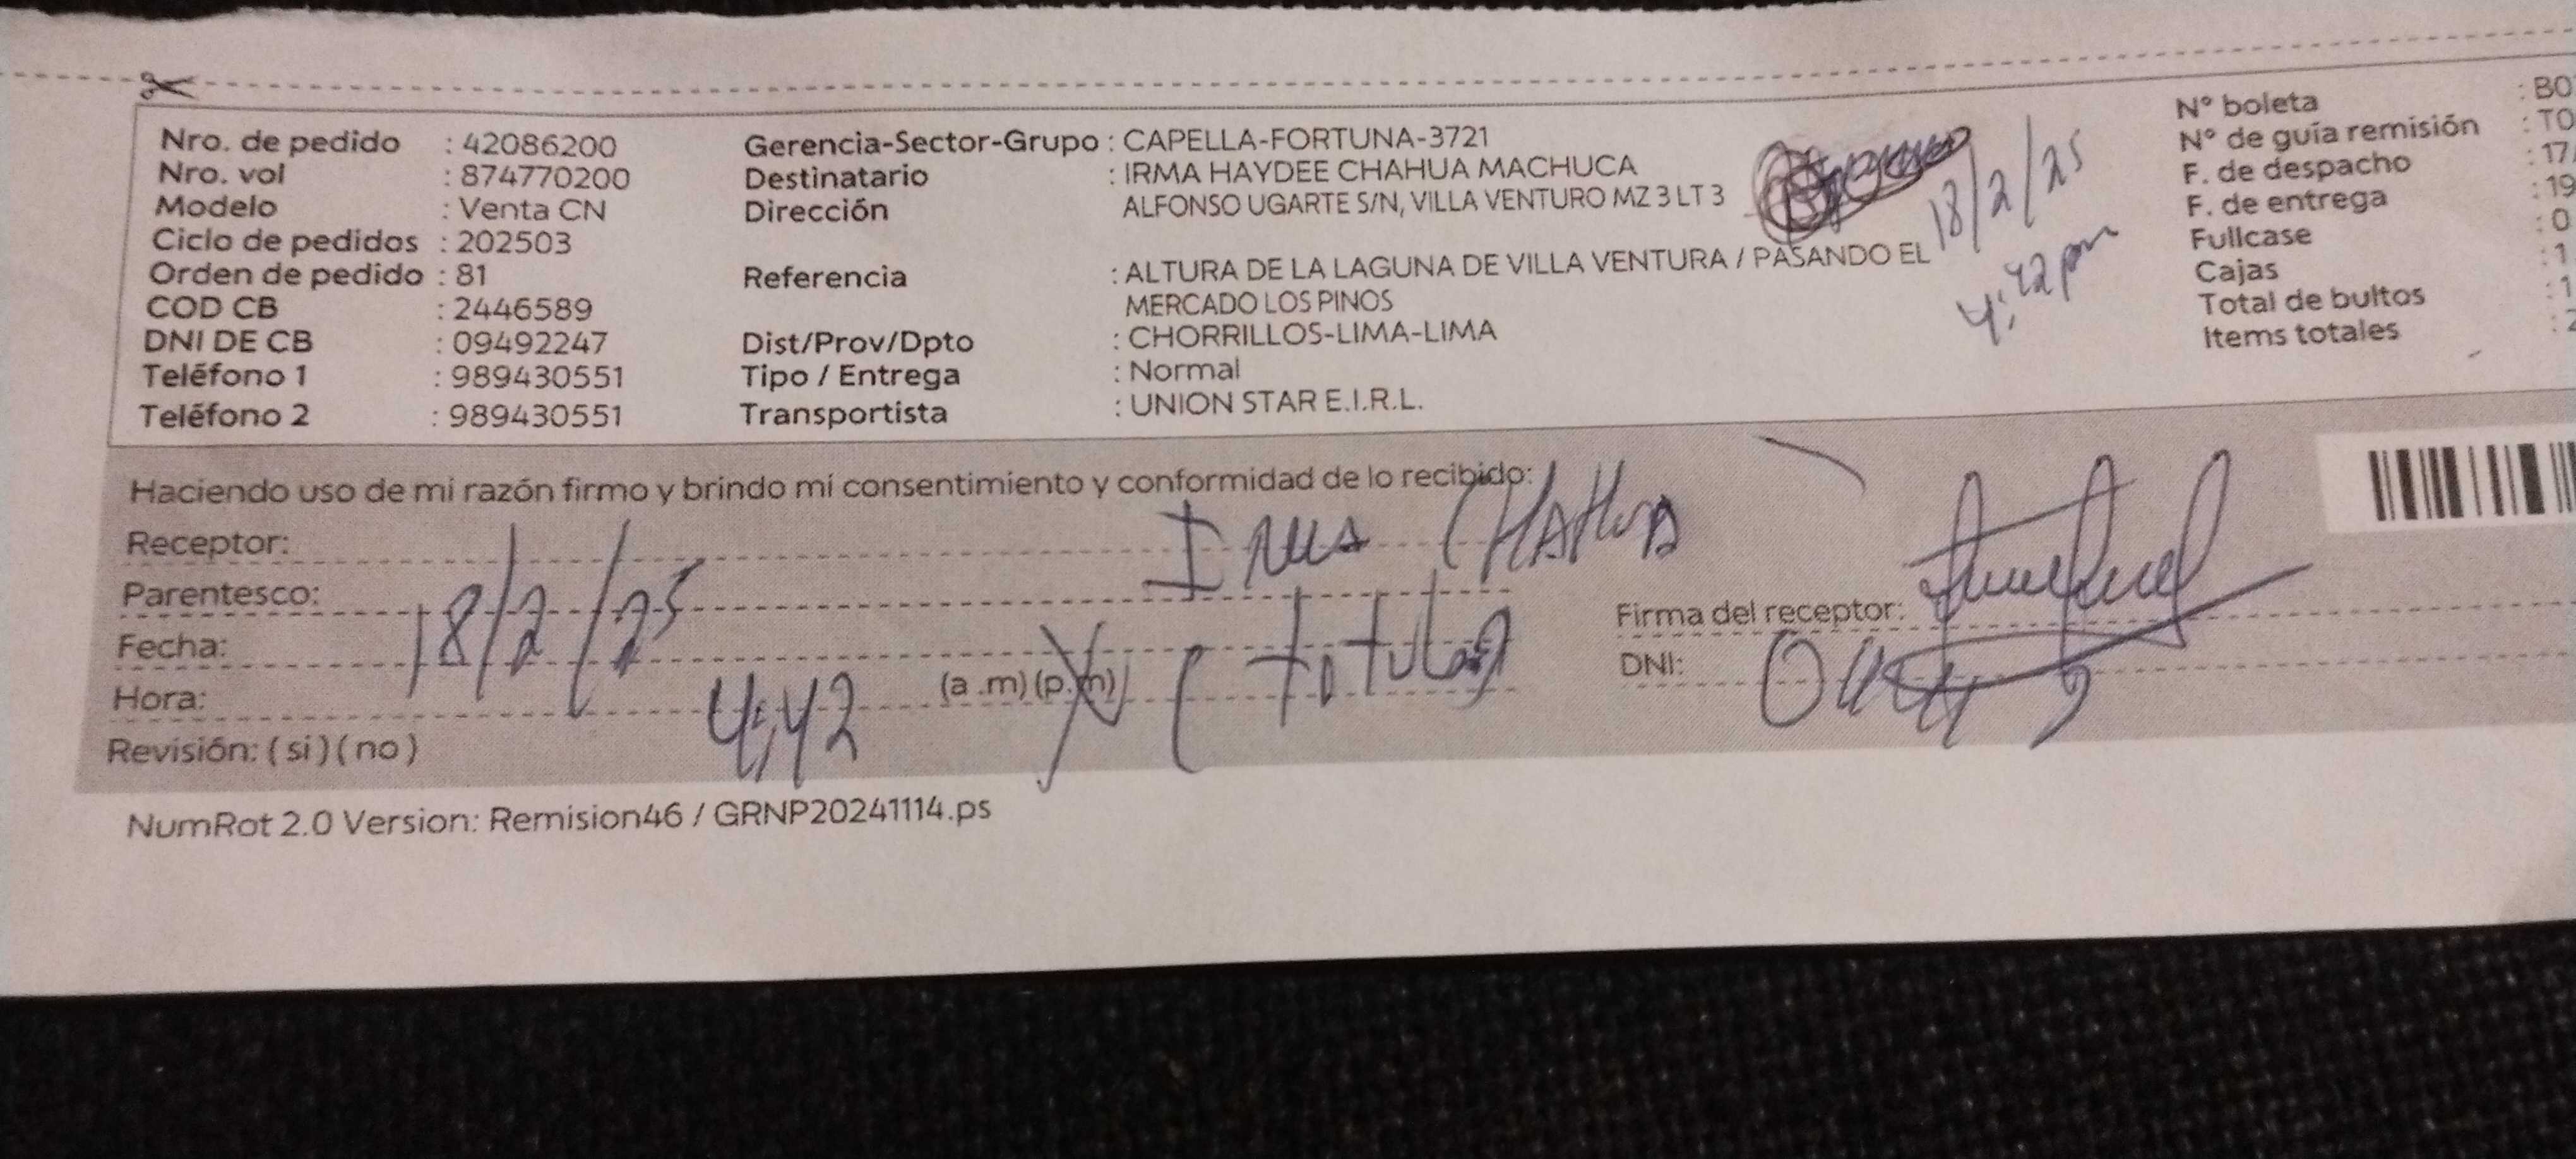 Nro. de pedido : 42086200
Nro. vol : 874770200
Modelo : Venta CN
Ciclo de pedidos : 202503
Orden de pedido : 81
COD CB : 2446589
DNI DE CB : 09492247
Teléfono 1 : 989430551
Teléfono 2 : 989430551
Gerencia-Sector-Grupo : CAPELLA-FORTUNA-3721
Destinatario : IRMA HAYDEE CHAHUA MACHUCA
Dirección ALFONSO UGARTE S/N, VILLA VENTURO MZ 3 LT 3
Referencia : ALTURA DE LA LAGUNA DE VILLA VENTURA / PASANDO EL
MERCADO LOS PINOS
Dist/Prov/Dpto : CHORRILLOS-LIMA-LIMA
Tipo / Entrega : Normal
Transportista : UNION STAR E.I.R.L.
18/2/25
4:42 pm
N° boleta : BO
N° de guía remisión : TO
F. de despacho : 17
F. de entrega : 19
Fullcase : 0
Cajas : 1
Total de bultos : 1
Items totales : 2
Haciendo uso de mi razón firmo y brindo mi consentimiento y conformidad de lo recibido:
Receptor: CHAHUA
Parentesco:
Fecha: 18/2/25
Hora: 4:42 (a .m) (p.m)
Revisión: ( si ) ( no )
Firma del receptor:
DNI:
NumRot 2.0 Version: Remision46 / GRNP20241114.ps